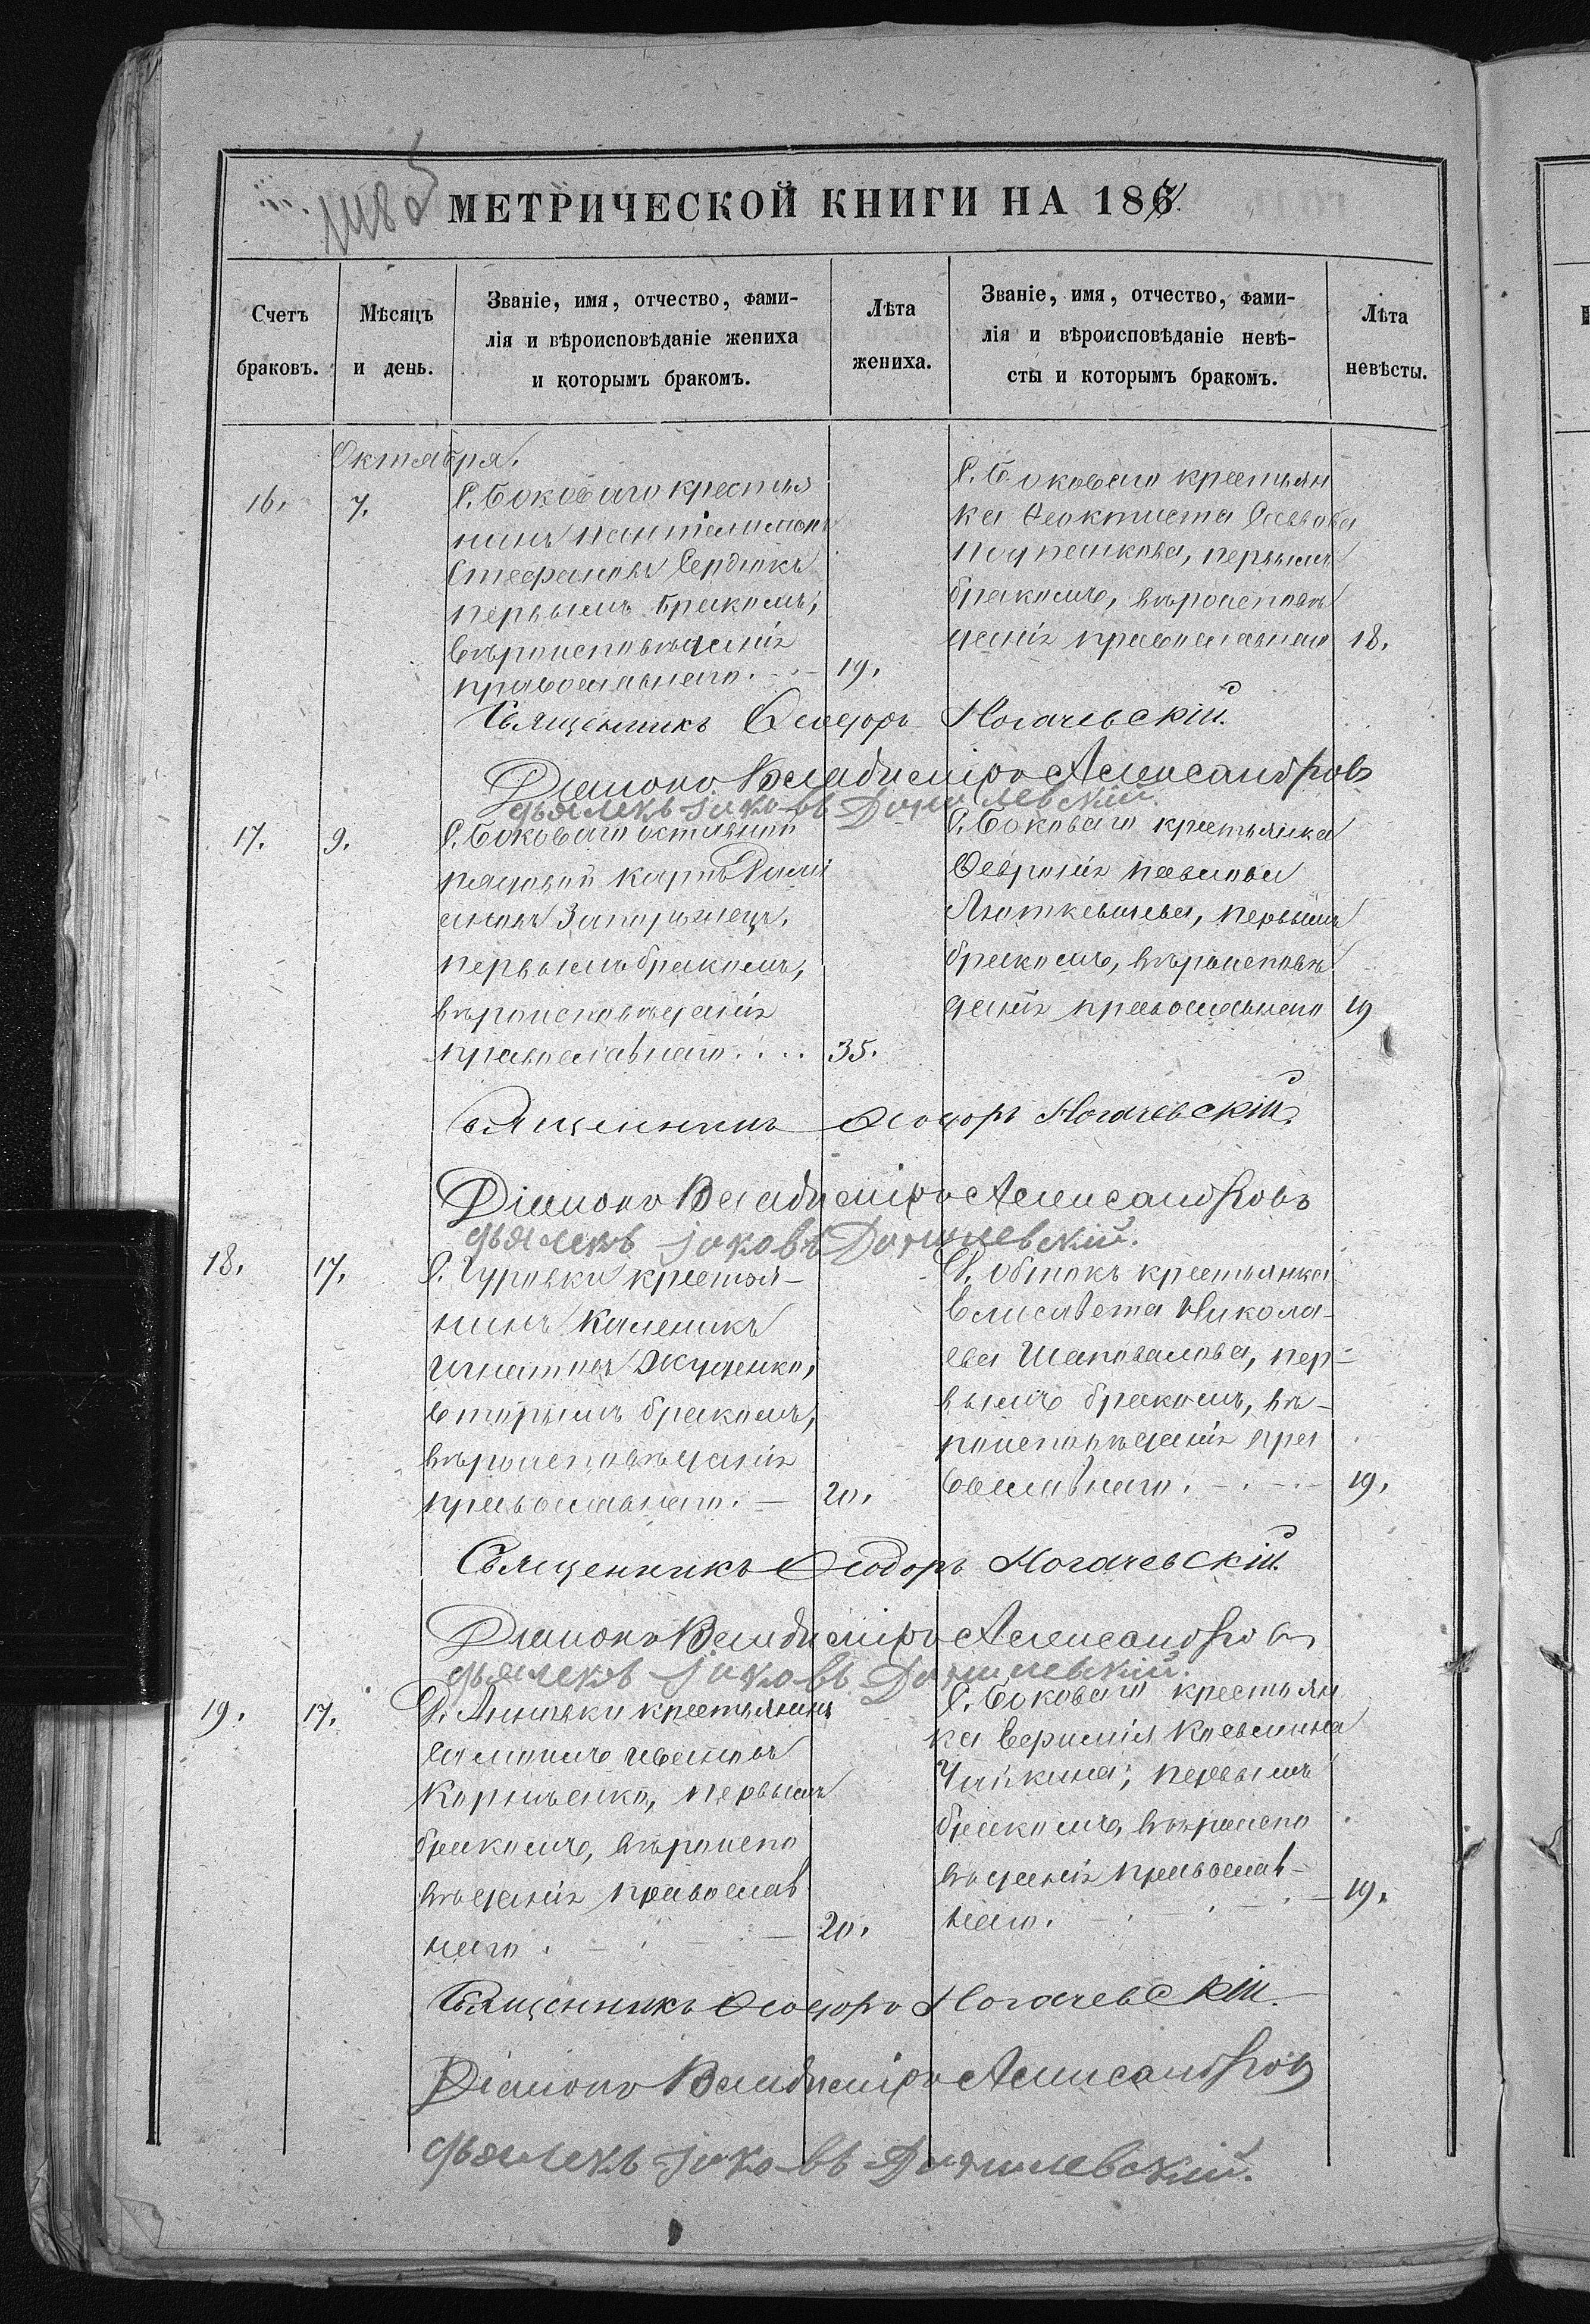 МЕТРИЧЕСКОЙ КНИГИ НА 186
Счетъ браковъ.
Мѣсяцъ и день.
Званіе, имя, отчество, фами-
лія и вѣроисповѣданіе жениха
и которымъ бракомъ.
Лѣта жениха.
Званіе, имя, отчество, фами-
лія и вѣроисповѣданіе невѣ-
сты и которымъ бракомъ.
Лѣта невѣсты.
Октября.
16.
7.
С. Боковаго крестья
нинъ Пантелимонъ
Стефановъ Сердюкъ
первымъ бракомъ,
вѣроисповѣданія
православнаго. 19.
С. Боковаго крестьян
ка Феоктиста Саввова
первымъ
бракомъ, вѣроисповѣ
данія православнаго 18.
Священникъ Феодоръ Ногачевскій.
Діаконъ Владиміръ Александровъ
дьячекъ Іаковъ
17.
9.
С. Боковаго отставной
рядовой Карпъ Дамі
ановъ Запорожецъ,
первымъ бракомъ,
вѣроисповѣданія
православнаго.... 35.
С. Боковаго крестьянка
Февронія Павлова
Люткевичева, первымъ
бракомъ, вѣроисповѣ
данія православнаго 19
Священникъ Феодоръ Ногачевскій.
Діаконъ Владиміръ Александровъ
дьячекъ Іаковъ
18.
17.
С. Гуровки крестья-
нинъ Каленикъ
Игнатовъ Жученко,
вторымъ бракомъ,
вѣроисповѣданія
православнаго. — 20.
Д. Обтокъ крестьянка
Елисавета Никола-
ева Шаповалова, пер-
вымъ бракомъ, вѣ-
роисповѣданія пра
вославнаго. 19.
Священникъ Феодоръ Ногачевскій.
Діаконъ Владиміръ Александровъ
дьячекъ Іаковъ
19.
17.
Д. Анновки крестьянинъ
Ивановъ
Корніенко, первымъ
бракомъ, вѣроиспо
вѣданія православ
наго. 20.
С. Боковаго крестьян
ка
Чайкина, первымъ
бракомъ, вѣроиспо
вѣданія православ-
наго. 19.
Священникъ Феодоръ Ногачевскій.
Діаконъ Владиміръ Александровъ
дьячекъ Іаковъ